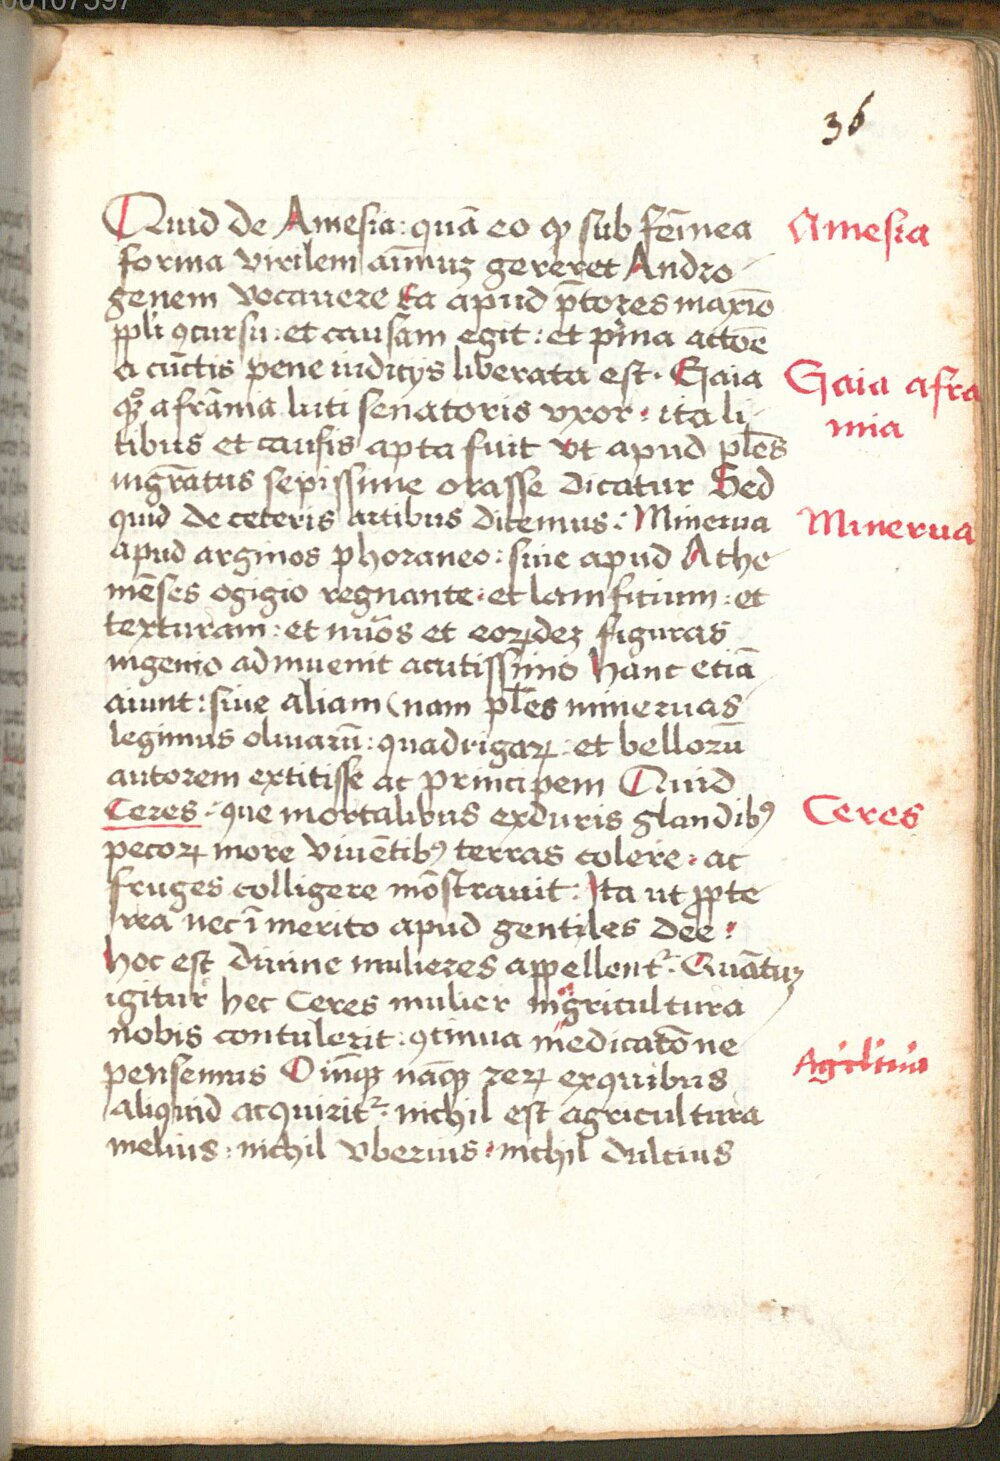 00107397
36
Quid de Amesia: quā eo ꝙ sub fēmnea
forma virilem aīmuʒ gereret Andro
genem vocavere Ea apud p̄tores maxīo
ppli ꝯcursu: et causam egit: et prīma actōe
a cūctis pene iudicijs liberata est. Gaia
qꝫ afrania luci senatoris vxor: ita li
tibus et causis apta fuit vt apud plēs
magr̄atus sepissime orasse dicatur Sed
quid de ceteris artibus dicemus: Minerva
apud arginos phoraneo: sive apud Athe
niēses ogigio regnante: et lanificium: et
texturam: et nūos et eorꝝdeʒ figuras
ingenio adinuenit acutissimo hanc etiā
aiunt: sive aliam (nam plēs minervas
legimus olivarū: quadrigaꝝ: et bellorū
autorem extitisse ac principem Quid
Ceres: que mortalibus exduris glandibꝰ
pecoꝝ more viuētibꝰ terras colere: ac
fruges colligere mōstravit: Ita ut ꝓpte
rea nec īmerito apud gentiles dee:
hoc est divine mulieres appellent᷑: Quātuʒ
igitur hec Ceres mulier in agricultura
nobis contulerit: ꝯtinua medicatōne
pensemus Oīmqꝫ nāqꝫ reꝝ exquibus
aliquid acquirit᷑: nichil est agricultura
melius: nichil vberius: nichil dulcius
Amesia
Gaia afra
mia
Minerva
Ceres